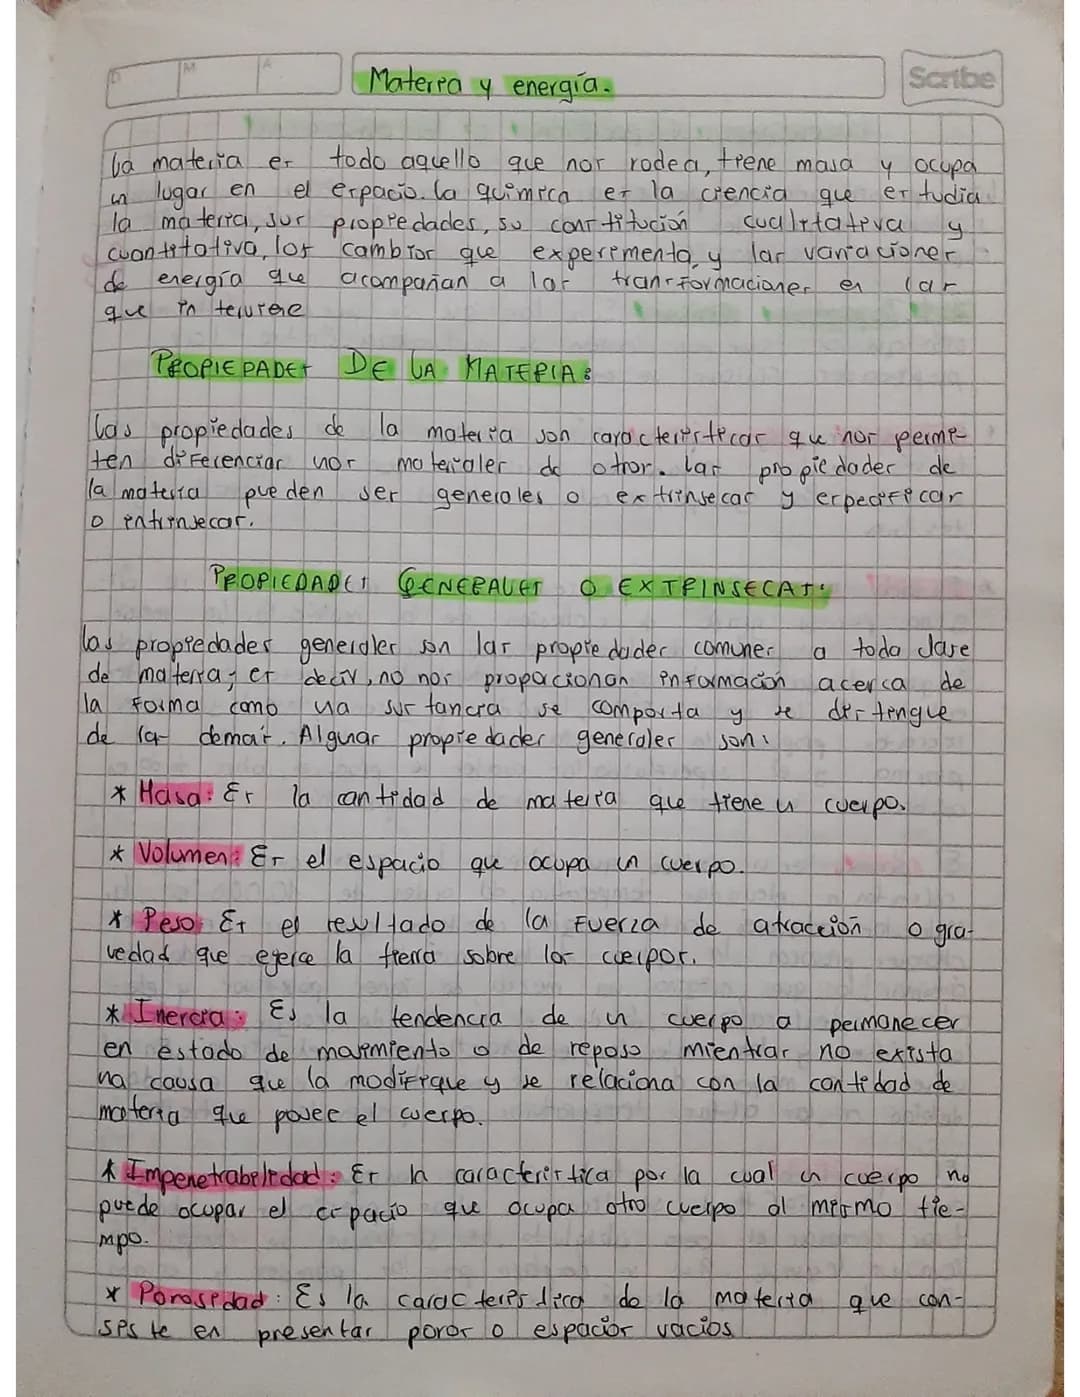 D M A
Materia y energía.
Scribe
La materia es todo aquello que nos rodea, tiene masa y ocupa
un lugar en el espacio. La química es la ciencia que estudia
la materia, sus propiedades, su constitución cualitativa y
cuantitativa, los cambios que experimenta, y las variaciones
de energía que acompañan a las transformaciones en las
que interviene
PROPIEDADES DE LA MATERIA:
Las propiedades de la materia son características que nos permi-
ten diferenciar unos materiales de otros. Las propiedades de
la materia pueden ser generales o extrínsecas y específicas
o intrínsecas.
PROPIEDADES GENERALES O EXTRINSECAS:
Las propiedades generales son las propiedades comunes a toda clase
de materia; es decir, no nos proporcionan información acerca de
la forma como una sustancia se comporta y se distingue
de las demás. Algunas propiedades generales son:
* Masa: Es la cantidad de materia que tiene un cuerpo.
* Volumen: Es el espacio que ocupa un cuerpo.
* Peso: Es el resultado de la fuerza de atracción o gra-
vedad que ejerce la tierra sobre los cuerpos.
* Inercia: Es la tendencia de un cuerpo a permanecer
en estado de movimiento o de reposo mientras no exista
una causa que la modifique y se relaciona con la cantidad de
materia que posee el cuerpo.
* Impenetrabilidad: Es la característica por la cual un cuerpo no
puede ocupar el espacio que ocupa otro cuerpo al mismo tie-
mpo.
* Porosidad: Es la característica de la materia que con-
siste en presentar poros o espacios vacios